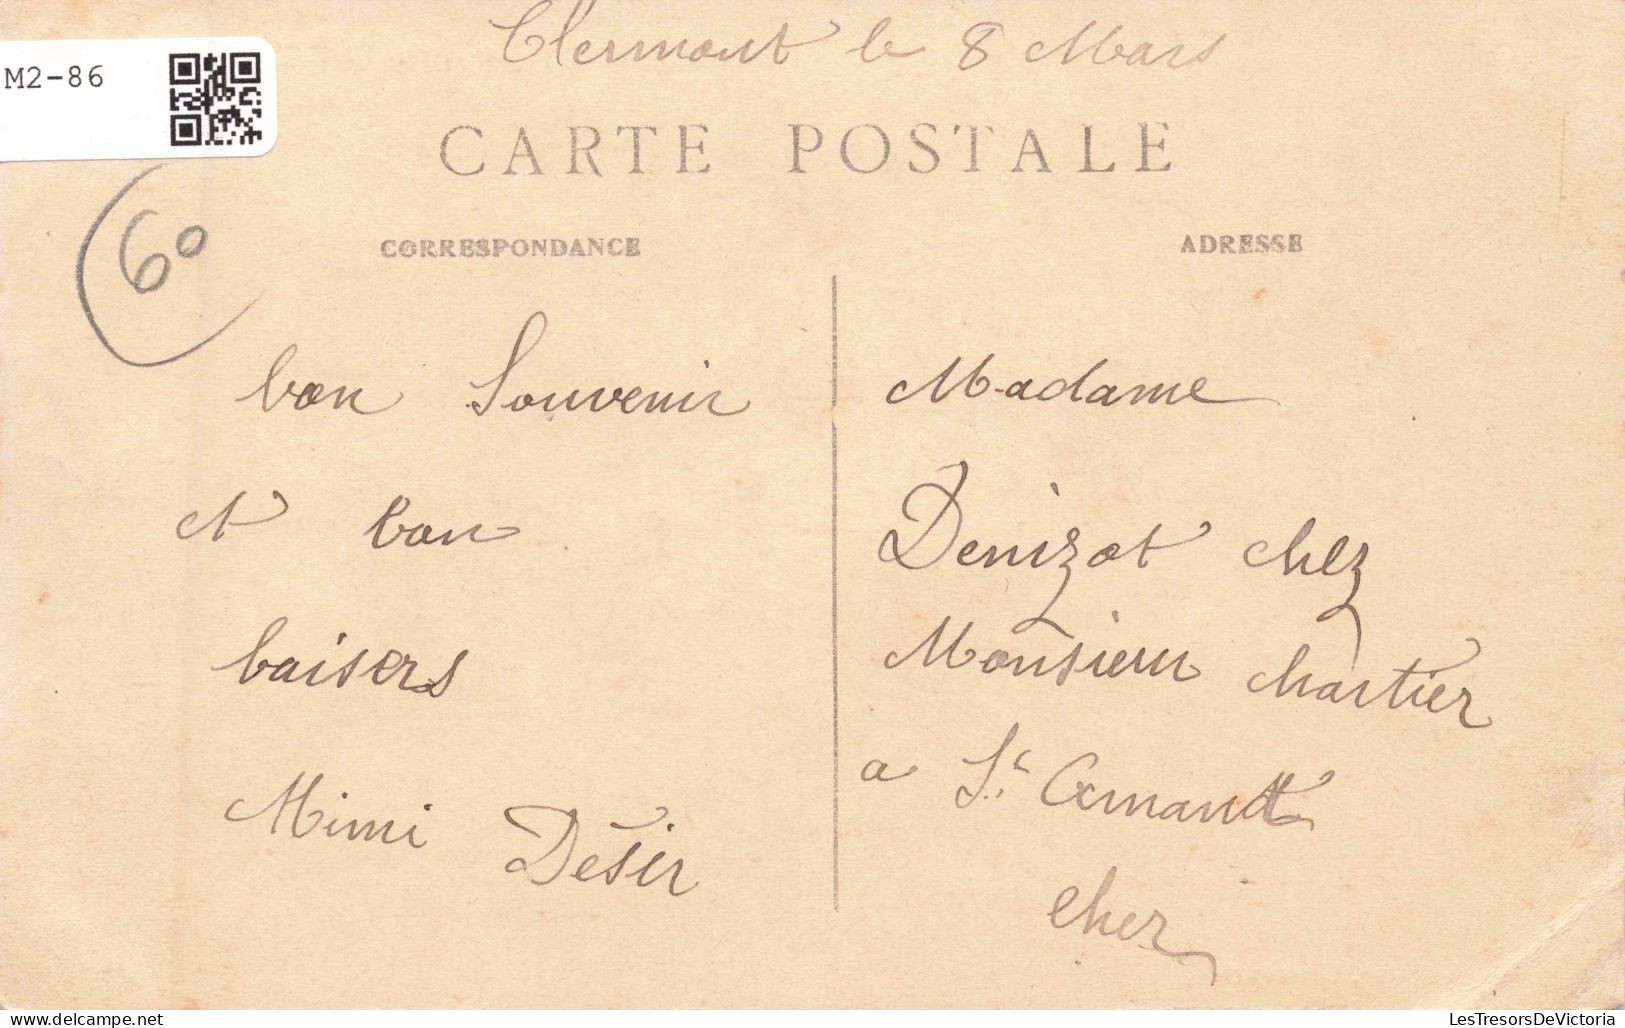 Clermont le 8 Mars
M2-86
CARTE POSTALE
60
CORRESPONDANCE
bon Souvenir
et bon
baisers
Mimi Désir
ADRESSE
Madame
Denizot chez
Monsieur chartier
a St Amand
cher
LesTresorsDeVictoria